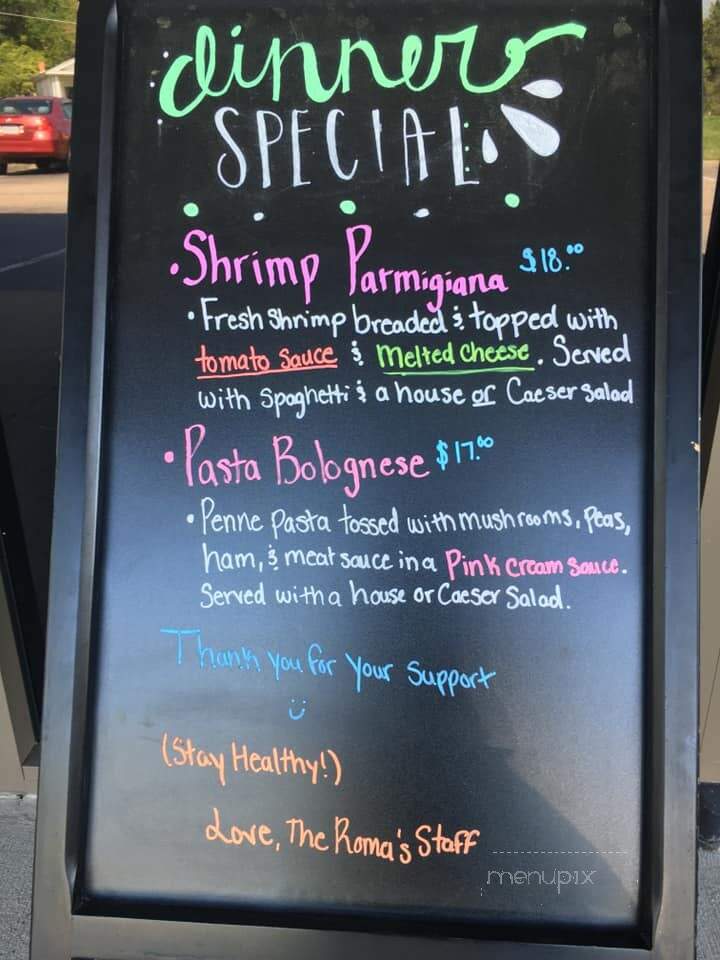 dinner
SPECIAL
•Shrimp Parmigiana $18.00
•Fresh Shrimp breaded & topped with
tomato Sauce & Melted Cheese. Served
with Spaghetti & a house or Caeser Salad
•Pasta Bolognese $17.00
•Penne Pasta tossed with mushrooms, Peas,
ham, & meat sauce in a Pink Cream Sauce.
Served with a house or Caeser Salad.
Thank you for your Support
(Stay Healthy!)
Love, The Roma's Staff
menupix